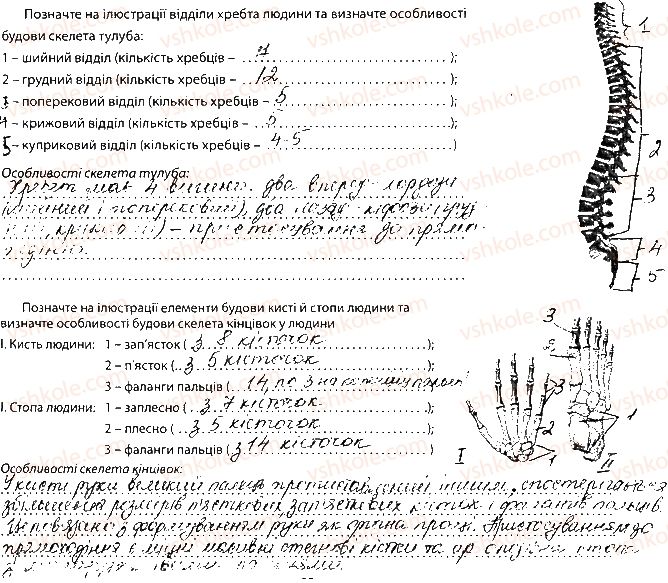 Позначте на ілюстрації відділи хребта людини та визначте особливості
будови скелета тулуба:
1 – шийний відділ (кількість хребців – 7);
2 – грудний відділ (кількість хребців – 12);
3 – поперековий відділ (кількість хребців – 5);
4 – крижовий відділ (кількість хребців – 5);
5 – куприковий відділ (кількість хребців – 4-5)
Особливості скелета тулуба:
Хребет має 4 вигини: два вперед лордози
(шийний і поперековий), два назад кіфози
– пристосування до
1
2
3
4
5
Позначте на ілюстрації елементи будови кисті й стопи людини та
визначте особливості будови скелета кінцівок у людини
І. Кисть людини: 1 – зап'ясток (з 8 кісточок);
2 – п'ясток (з 5 кісточок);
3 – фаланги пальців (14, по 3 на);
І. Стопа людини: 1 – заплесно (з 7 кісточок);
2 – плесно (з 5 кісточок);
3 – фаланги пальців (з 14 кісточок)
3
2
3
2
1
1
І
ІІ
Особливості скелета кінцівок:
У кисті руки великий палець протиставлений іншим, спостерігається
збільшення розмірів п'ясткових зап'ясткових кісток і фаланг пальців.
Це пов'язано з формуванням руки як органа праці. Пристосуванням до
прямоходіння є міцні масивні стегнові кістки та стопа
vshkole.com